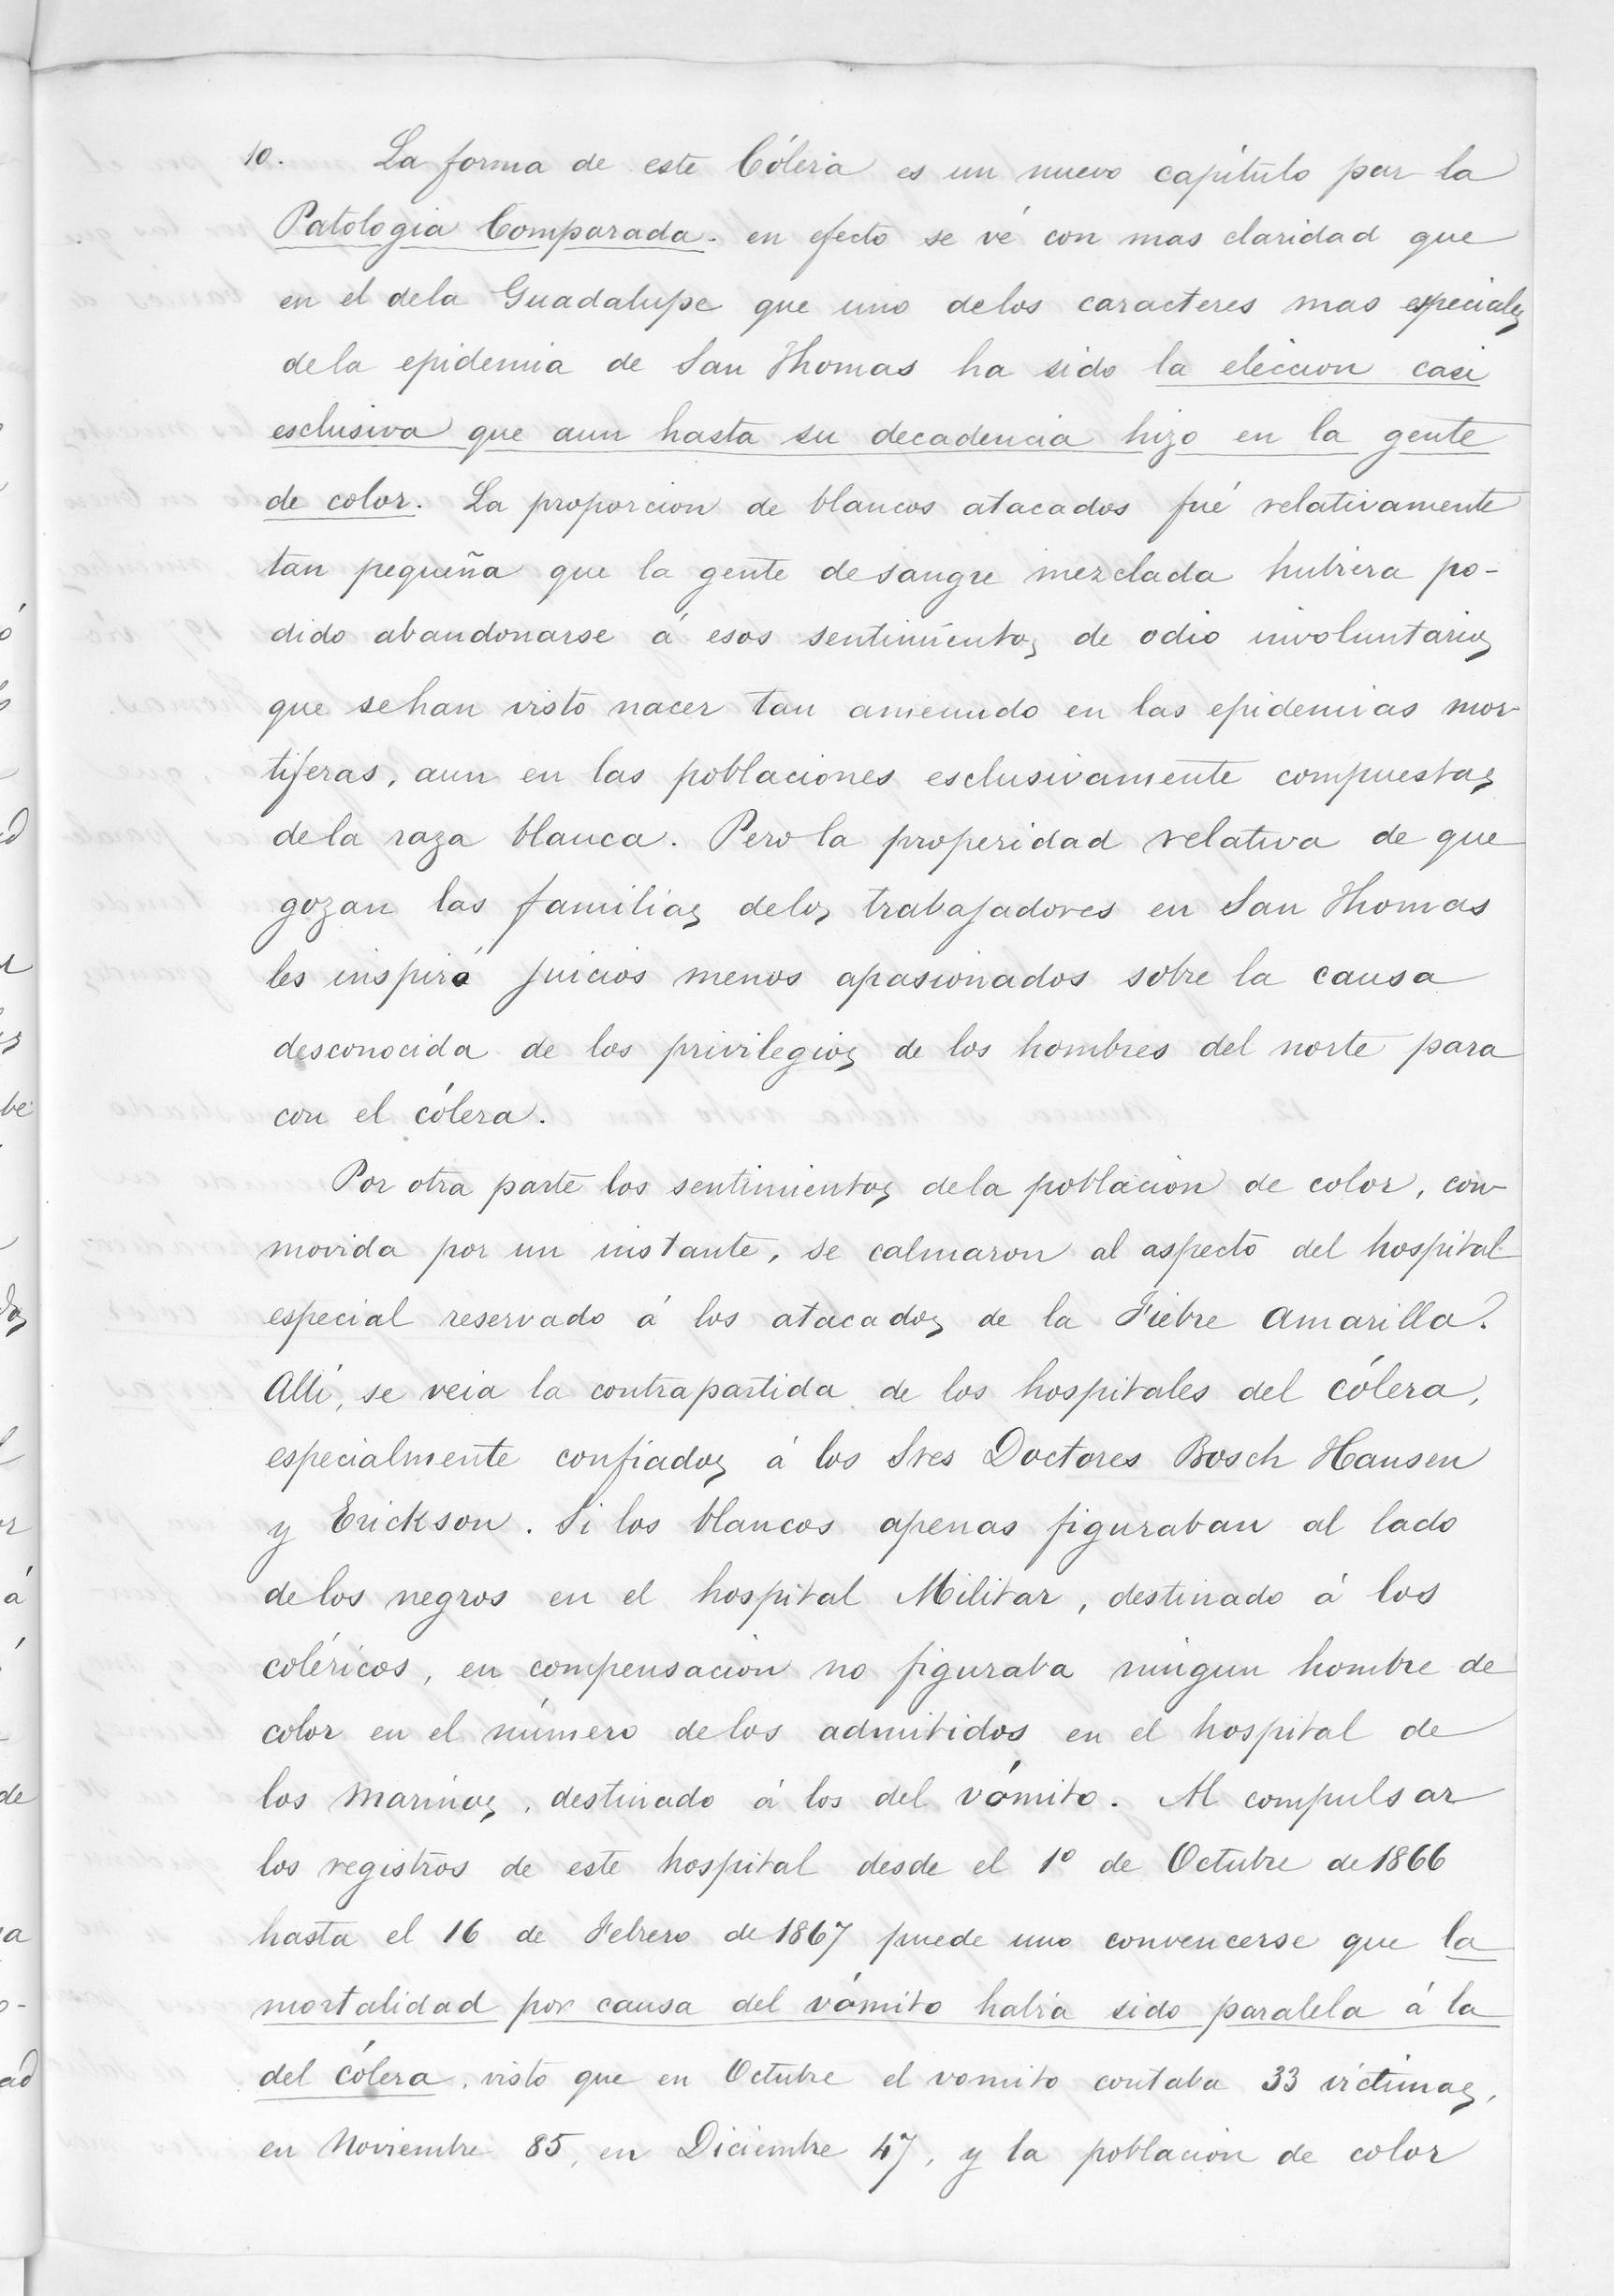 10. La forma de este Cólera es un nuevo capítulo par la
Patologia Comparada. en efecto se vé con mas claridad que
en el dela Guadalupe que uno delos caracteres mas especiales
dela epidemia de San Thomas ha sido la eleccion casi
esclusiva que aun hasta su decadencia hizo en la gente
de color. La proporcion de blancos atacados fué relativamente
tan pequeña que la gente de sangre mezclada hubiera po-
dido abandonarse á esos sentimientos de odio involuntarios
que se han visto nacer tan amenudo en las epidemias mor-
tíferas, aun en las poblaciones esclusivamente compuestas
dela raza blanca. Pero la properidad relativa de que
gozan las familias delos trabajadores en San Thomas
les inspiró juicios menos apasionados sobre la causa
desconocida de los privilegios de los hombres del norte para
con el cólera.
Por otra parte los sentimientos dela poblacion de color, con-
movida por un instante, se calmaron al aspecto del hospital
especial reservado á los atacados de la Fiebre Amarilla.
Allí, se veia la contrapartida de los hospitales del cólera,
especialmente confiados á los Sres Doctores Bosch Hansen
y Erickson. Si los blancos apenas figuraban al lado
de los negros en el hospital Militar, destinado á los
coléricos, en compensacion no figuraba ningun hombre de
color en el número de los admitidos en el hospital de
los Marinos, destinado á los del vómito. Al compulsar
los registros de este hospital desde el 1º de Octubre de 1866
hasta el 16 de Febrero de 1867 puede uno convencerse que la
mortalidad por causa del vómito habia sido paralela á la
del cólera, visto que en Octubre el vomito contaba 33 víctimas,
en Noviembre 85, en Diciembre 47, y la poblacion de color